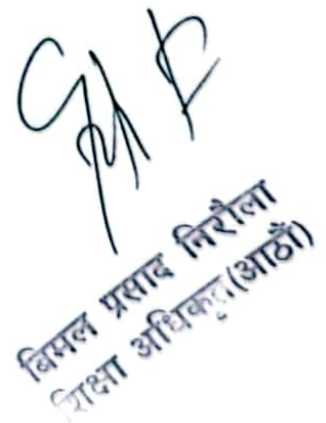 बिमल प्रसाद निरौला
शिक्षा अधिकृत(आठौं)